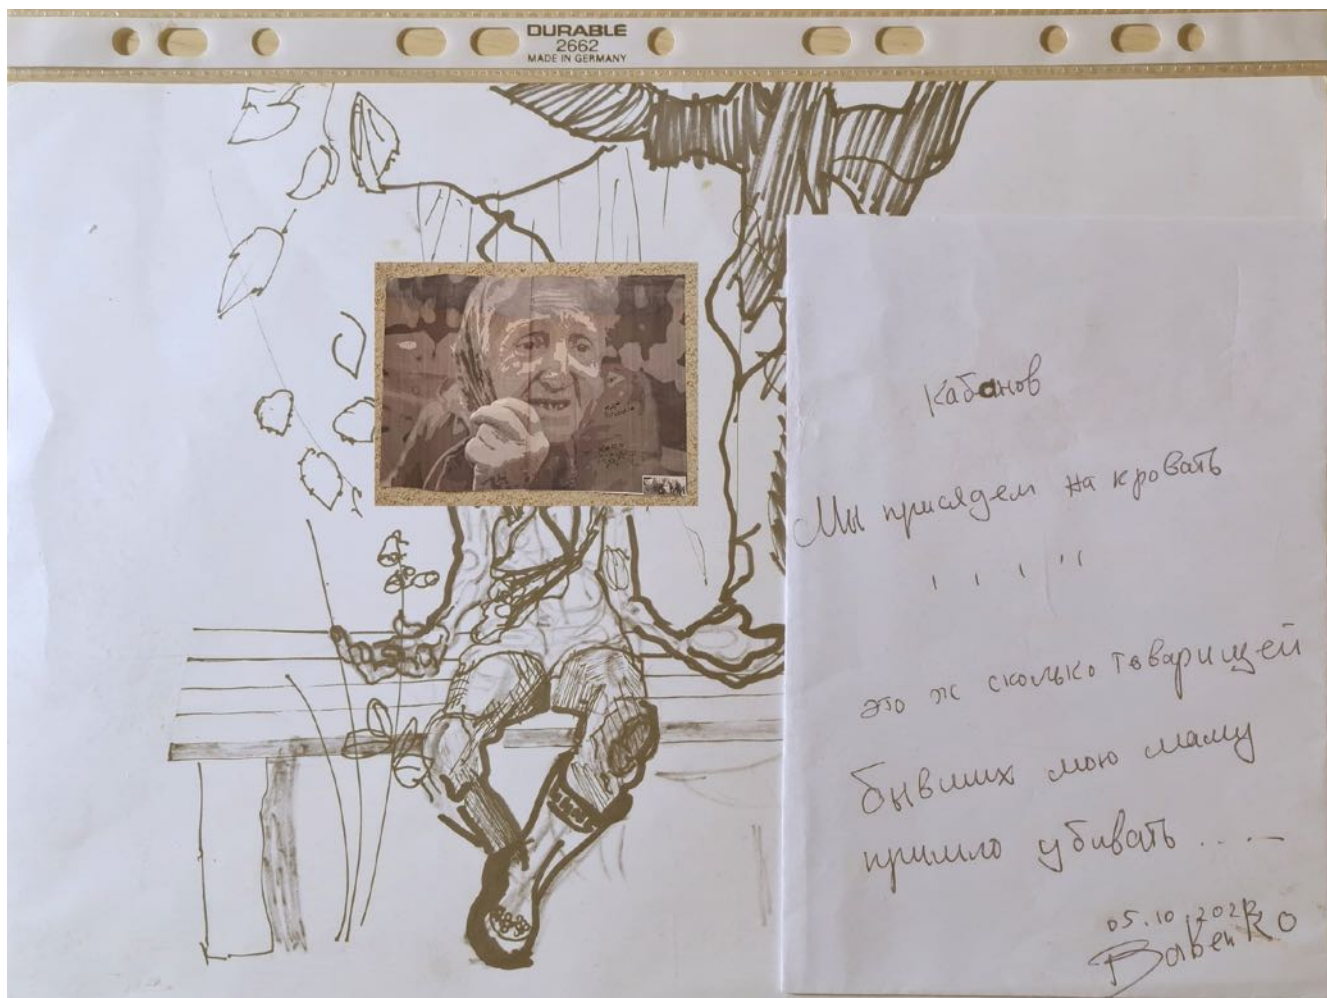 DURABLE
2662
MADE IN GERMANY
Кабанов
Мы присядем на кровать
это ж сколько товарищей
бывших мою маму
пришло убивать ....
05.10.2022
Бабенко